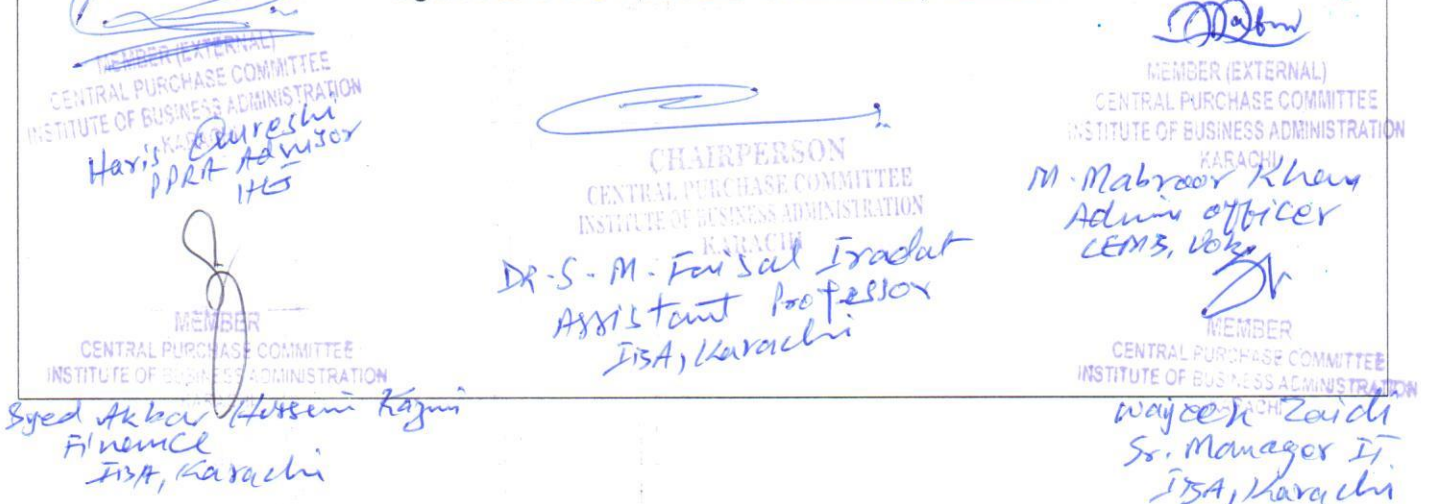 MEMBER (EXTERNAL)
CENTRAL PURCHASE COMMITTEE
INSTITUTE OF BUSINESS ADMINISTRATION
Haris Qureshi
PPRA Advisor
MEMBER
CENTRAL PURCHASE COMMITTEE
INSTITUTE OF BUSINESS ADMINISTRATION
Syed Akbar Hussein Kazmi
Finance
IBA, Karachi
CHAIRPERSON
CENTRAL PURCHASE COMMITTEE
INSTITUTE OF BUSINESS ADMINISTRATION
KARACHI
DR. S. M. Faisal Iradat
Assistant Professor
IBA, Karachi
MEMBER (EXTERNAL)
CENTRAL PURCHASE COMMITTEE
INSTITUTE OF BUSINESS ADMINISTRATION
KARACHI
M. Mabroor Khan
Admin officer
MEMBER
CENTRAL PURCHASE COMMITTEE
INSTITUTE OF BUSINESS ADMINISTRATION
Wajeeh Zaidi
Sr. Manager IT
IBA, Karachi